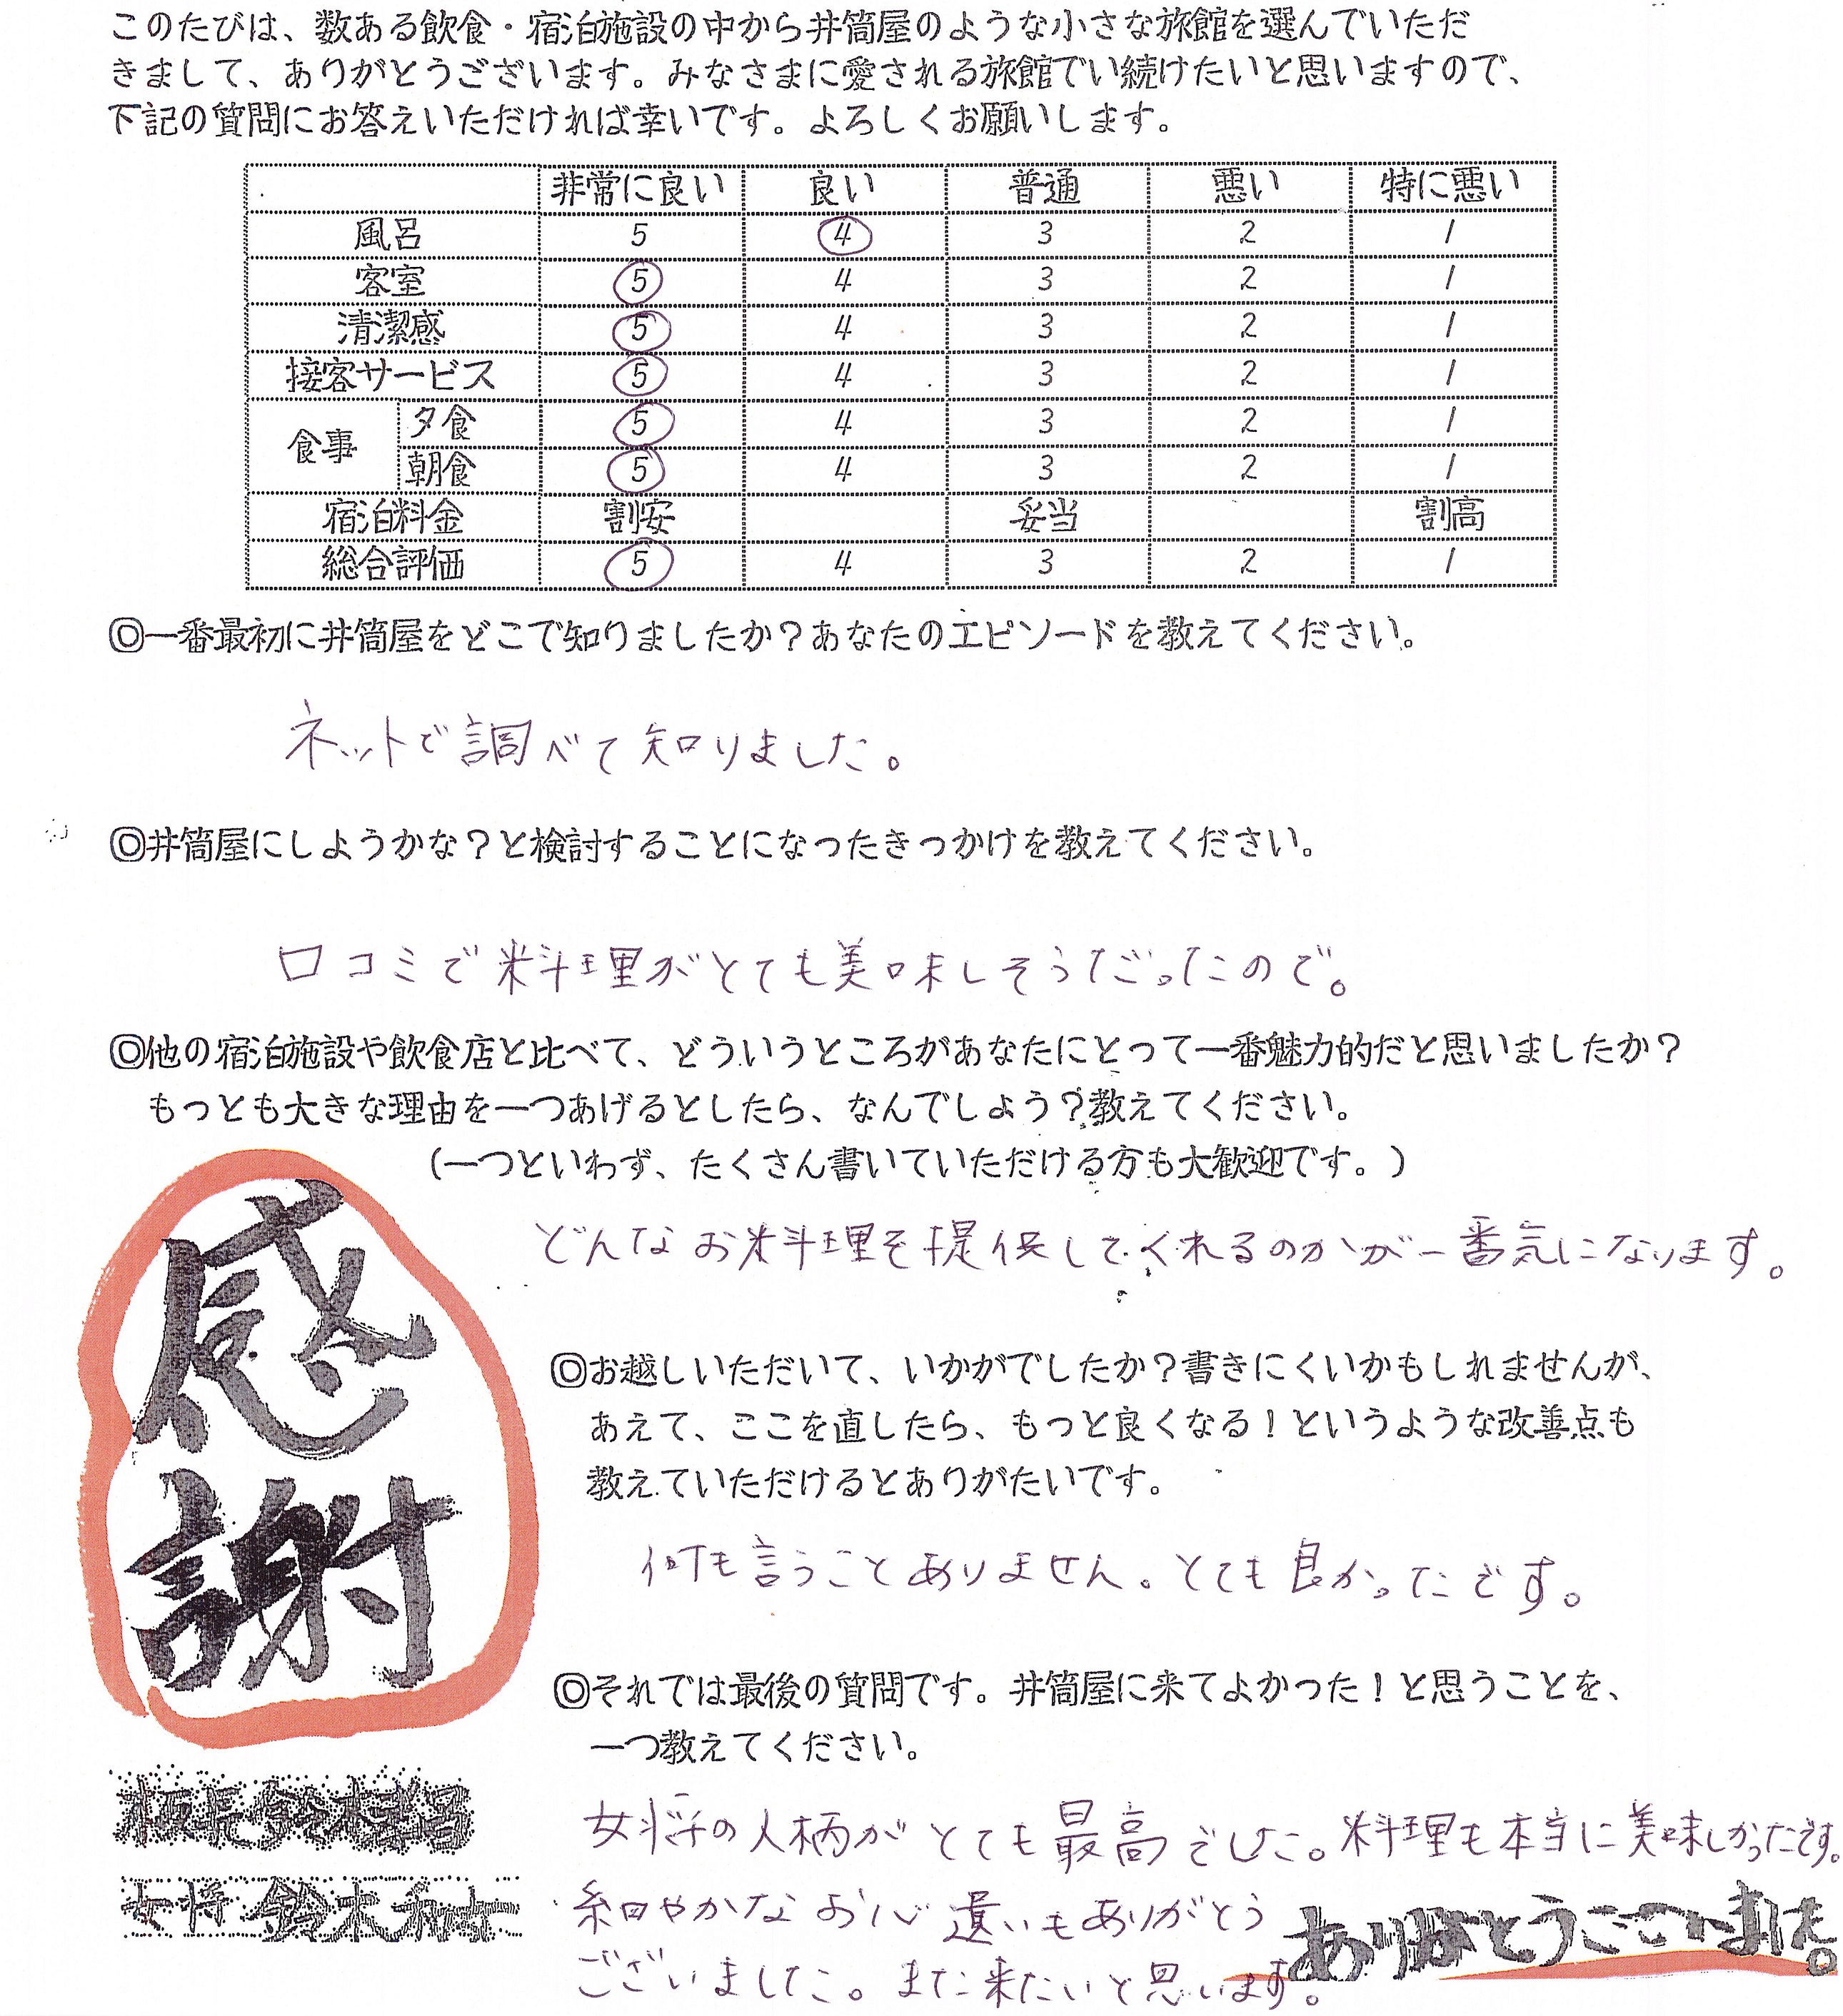 このたびは、数ある飲食・宿泊施設の中から井筒屋のような小さな旅館を選んでいただ
きまして、ありがとうございます。みなさまに愛される旅館でい続けたいと思いますので、
下記の質問にお答えいただければ幸いです。よろしくお願いします。
非常に良い 良い 普通 悪い 特に悪い
風呂 5 4 3 2 1
客室 5 4 3 2 1
清潔感 5 4 3 2 1
接客サービス 5 4 3 2 1
食事 夕食 5 4 3 2 1
朝食 5 4 3 2 1
宿泊料金 割安 妥当 割高
総合評価 5 4 3 2 1
◎一番最初に井筒屋をどこで知りましたか？あなたのエピソードを教えてください。
ネットで調べて知りました。
◎井筒屋にしようかな？と検討することになったきっかけを教えてください。
口コミで料理がとても美味しそうだったので。
◎他の宿泊施設や飲食店と比べて、どういうところがあなたにとって一番魅力的だと思いましたか？
もっとも大きな理由を一つあげるとしたら、なんでしょう？教えてください。
(一つといわず、たくさん書いていただける方も大歓迎です。)
どんなお料理を提供してくれるのかが一番気になります。
感謝
◎お越しいただいて、いかがでしたか？書きにくいかもしれませんが、
あえて、ここを直したら、もっと良くなる！というような改善点も
教えていただけるとありがたいです。
何も言うことありません。とても良かったです。
◎それでは最後の質問です。井筒屋に来てよかった！と思うことを、
一つ教えてください。
女将の人柄がとても最高でした。料理も本当に美味しかったです。
細やかなお心遣いもありがとう
ございました。また来たいと思います。
板長 鈴木
女将 鈴木
ありがとうございました。